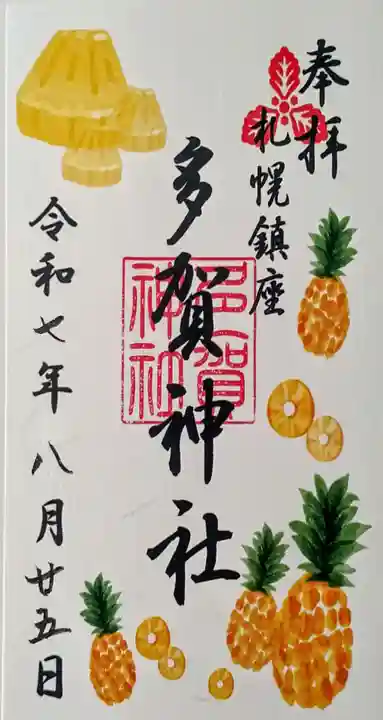 奉拝
札幌鎮座
多賀神社
多賀
神社
令和七年八月廿五日